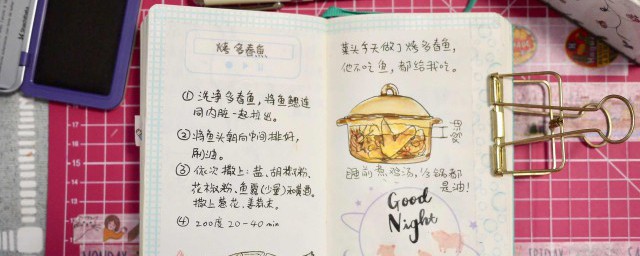 烤多春鱼
① 洗净多春鱼，将鱼鳃连
同内脏一起拉出。
② 将鱼头朝向中间排好，
刷油。
③ 依次撒上：盐、胡椒粉、
花椒粉、鱼露（少量）和黄酒。
撒上葱花、姜末。
④ 200度 20-40 min
葉头今天做了烤多春鱼，
他不吃鱼，都给我吃。
睡前煮鸡汤，全锅都
是油！
Good
Night
MONDAY
FRIDAY